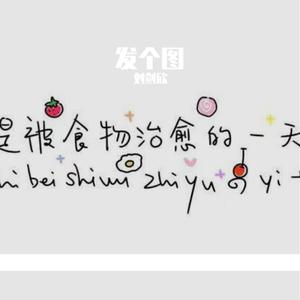 发个图
是被食物治愈的一天
hi bei shi wu zhi yu の yi t